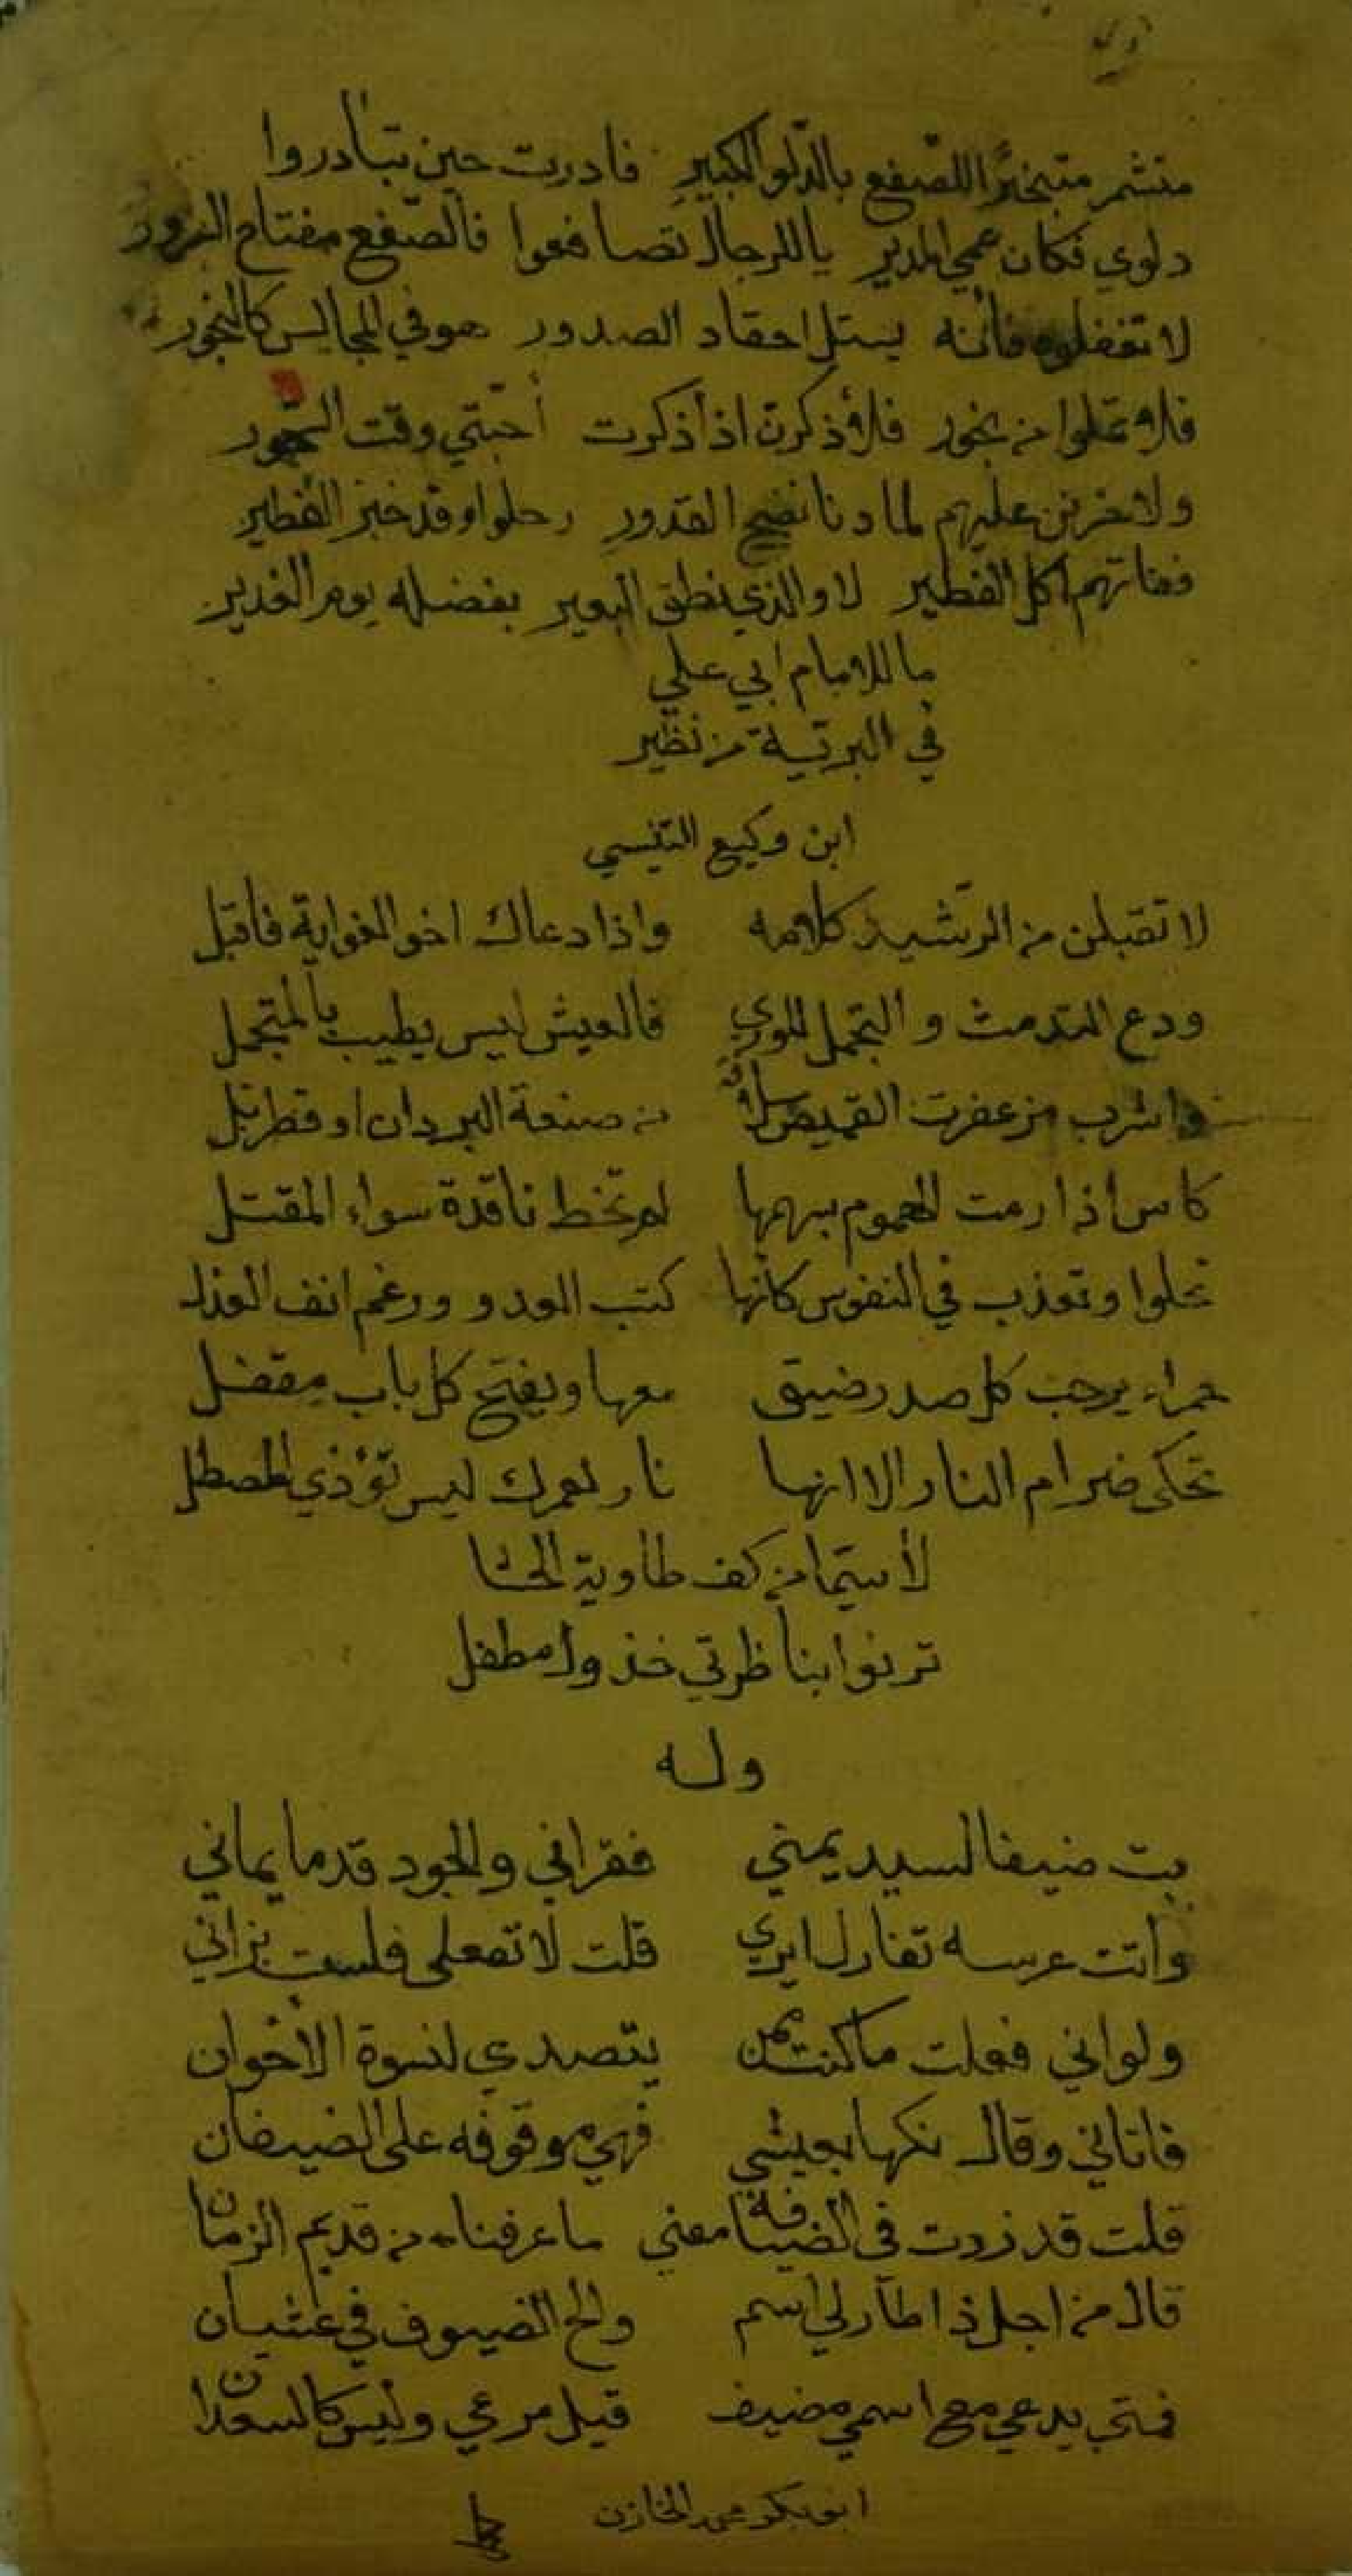 متشمر متبختراً للصفع بالدّلو الكبيرِ فادرت حين تبادروا
دلوي فكان عمي المدير يا للرجال تصافعوا فالصّفع مفتاح السرور
لا تغفلوه فأنه يستل احقاد الصدور هو في المجالس كالبخور
فلا تملوا من بخور فلأذكرن اذا ذكرت أحبتي وقت السحور
ولاحزنن عليهم لما دنا نضج القدور رحلوا وقد خبز الفطير
ففاتهم اكل الفطير لا والذي نطق البعير بفضله يوم الغدير
ما للامام ابي علي
في البريّة من نظير
ابن وكيع التنيسي
لا تقبلن من الرشيد كلامه واذا دعاك اخو الغواية فأقبل
ودع التدمث و التجمل للورى فالعيش ليس يطيب بالمتجمل
واشرب مزعفرت القميص سلافة من صنعة البردان او قطربّل
كاس اذا رمت الهموم بسهمها لم تخط نافدة سواء المقتل
تحلوا وتعذب في النفوس كأنها كتب العدو ورغم انف العذل
حمراء يرحب كل صدر ضيق معها ويفتح كل باب مقفل
تحكى ضرام النار الا انها نار لعمرك ليس تؤذي المصطل
لأسيّما من كف طاوية الحشا
ترنوا بناظرتي خذول مطفل
وله
بت ضيفا لسيد يمني فقراني والجود قدما يماني
وأتت عرسه تغازل ايري قلت لا تفعلى فلست بزاني
ولواني فعلت ما كنت ممن يتصدى لنسوة الأخوان
فاتاني وقال نكها بعيشي فهي موقوفه على الضيفان
قلت قد زدت في الضيافة معنى ما عرفناه من قديم الزمان
قال من اجل ذا طار لي اسم ولح الضيوف في غشيان
فمتى يدعي مع اسمي مضيف قيل مرعي وليس كالسعدان
ابو بكر محمد الخازن